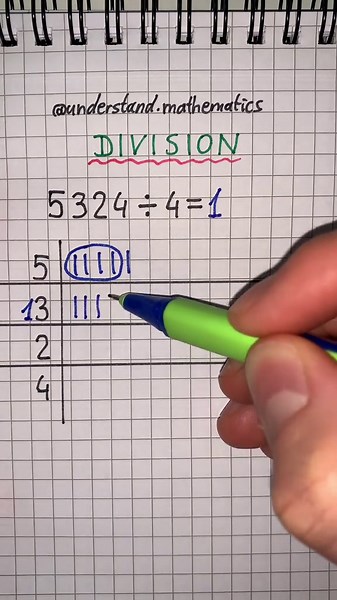 @understand.mathematics
DIVISION
5324÷4=1
5 |||||
13 |||
2
4